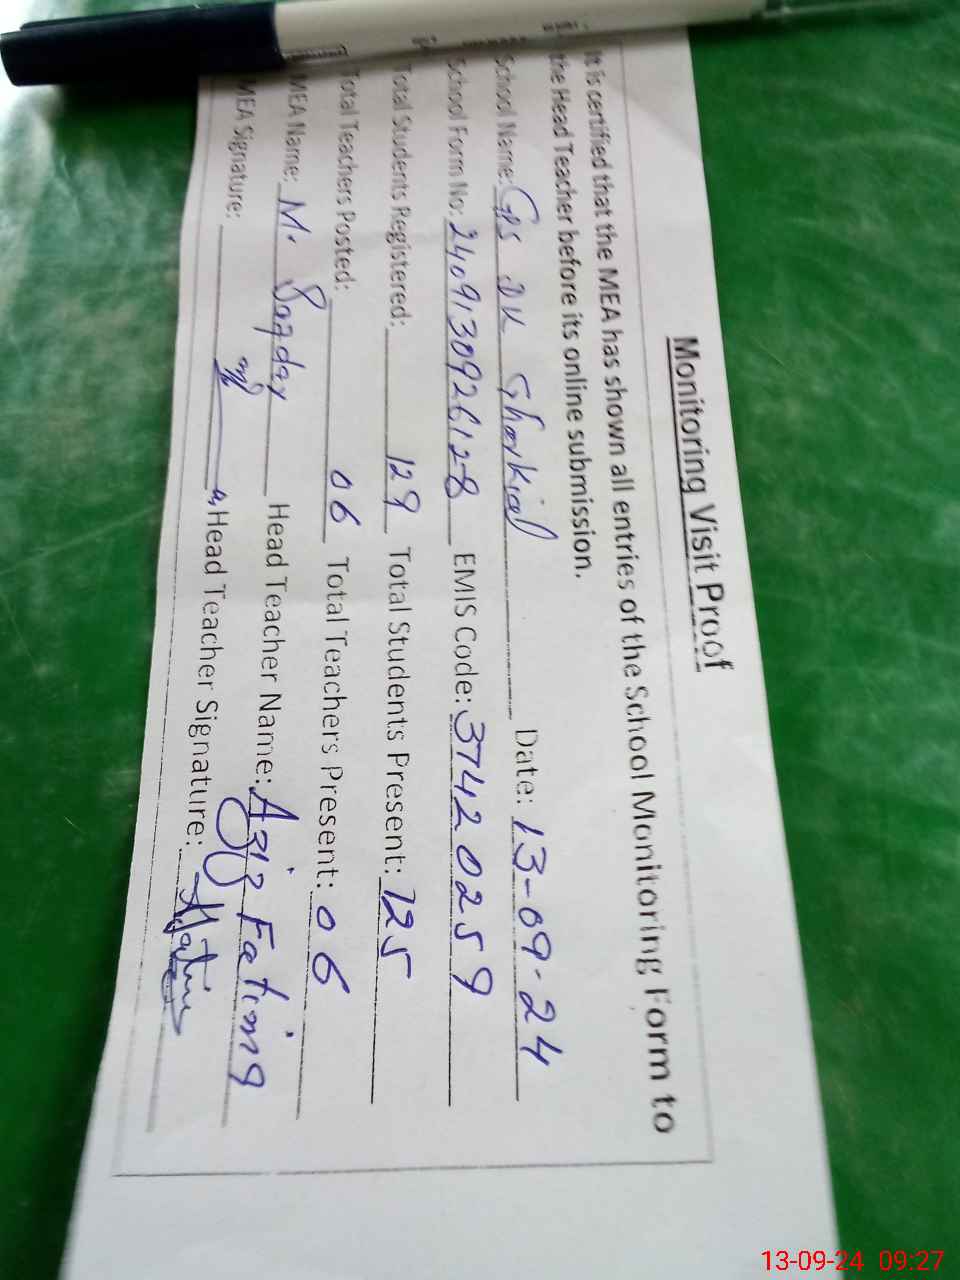 Monitoring Visit Proof
It is certified that the MEA has shown all entries of the School Monitoring Form to
the Head Teacher before its online submission.
School Name: GPS DK Gharkial Date: 13-09-24
School Form No: 2409130926128 EMIS Code: 37420259
Total Students Registered: 129 Total Students Present: 125
Total Teachers Posted: 06 Total Teachers Present: 06
MEA Name: M. Head Teacher Name: Aziz Fatima
MEA Signature: Head Teacher Signature:
13-09-24 09:27